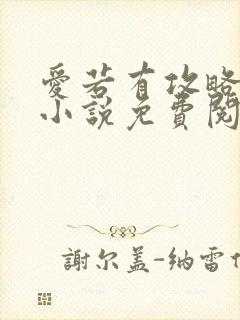 愛若有攻略
小說免費閱
謝尔盖-纳雷